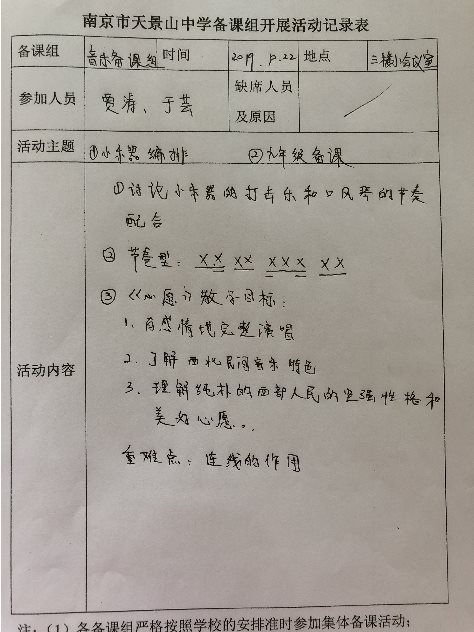 南京市天景山中学备课组开展活动记录表
备课组 音乐备课组 时间 2019.10.22 地点 三楼小会议室
参加人员 贾涛、于芸 缺席人员及原因
活动主题 ①小乐器编排 ②九年级备课
活动内容
①讨论小乐器的打击乐和口风琴的节奏
配合
②节奏型: XX XX XXX XX
③《心愿》教学目标:
1、有感情地完整演唱
2、了解西北民间音乐特色
3、理解纯朴的西部人民的坚强性格和
美好心愿。
重难点:连线的作用
注:(1)各备课组严格按照学校的安排准时参加集体备课活动;